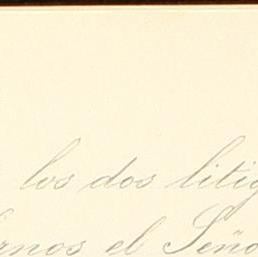 los dos litig
rnos el Seño